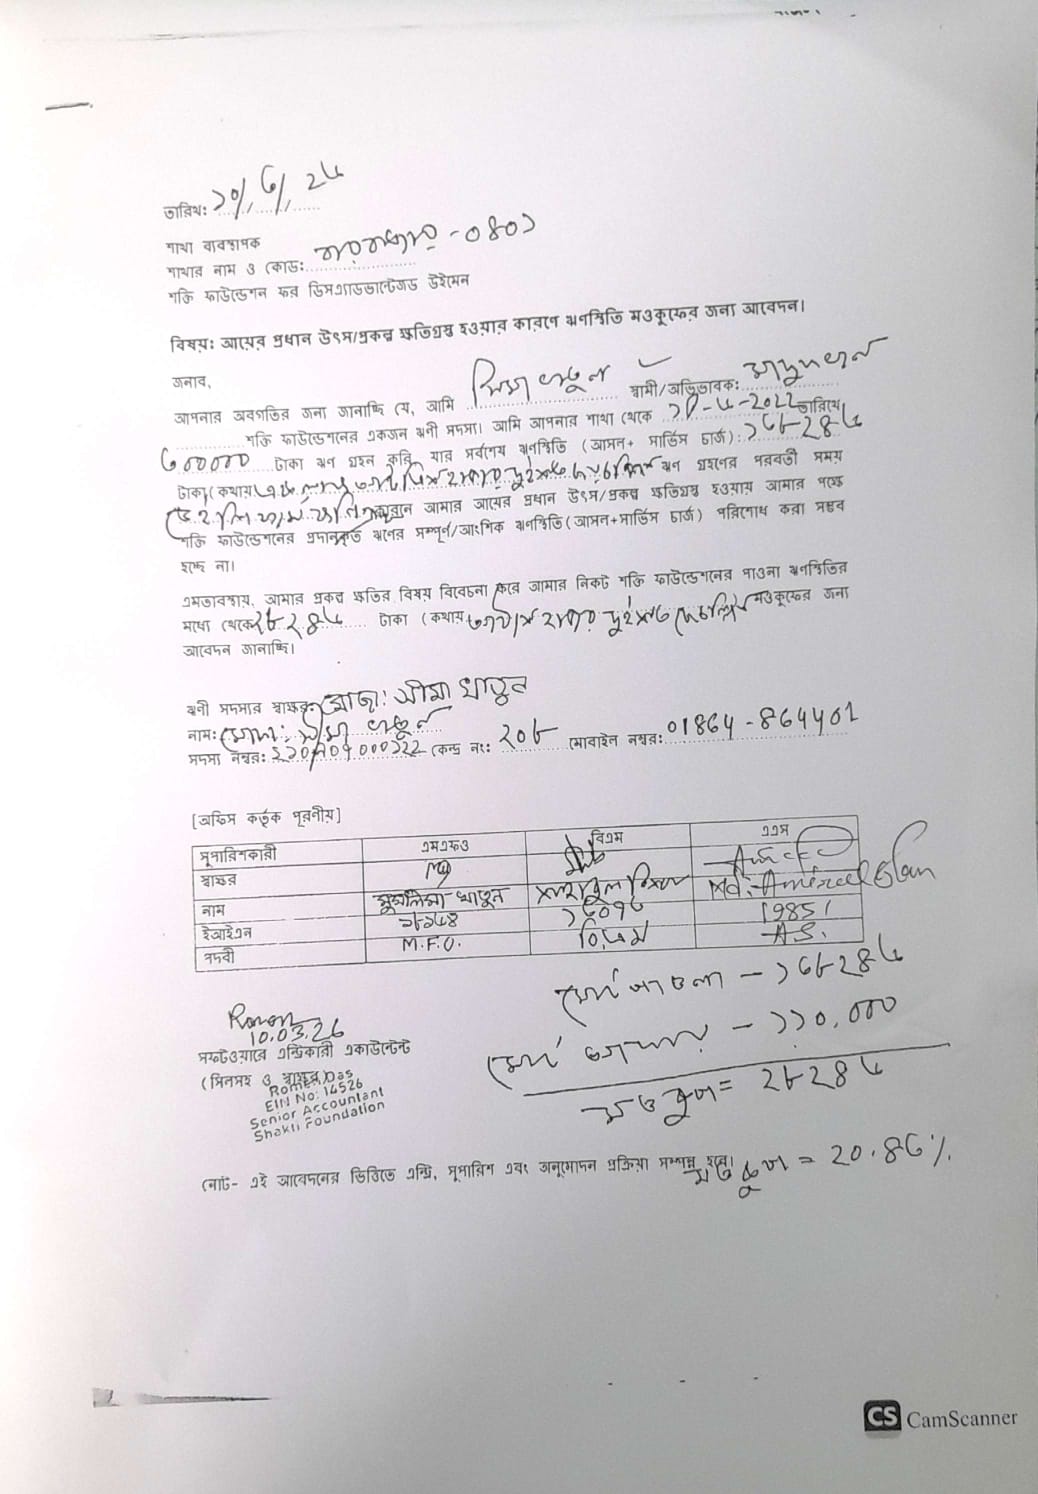 তারিখ: ১০/৩/২৬
শাখা ব্যবস্থাপক
শাখার নাম ও কোড: -০৪০১
শক্তি ফাউন্ডেশন ফর ডিসএ্যাডভান্টেজড উইমেন
বিষয়: আয়ের প্রধান উৎস/প্রকল্প ক্ষতিগ্রস্থ হওয়ার কারণে ঋণস্থিতি মওকুফের জন্য আবেদন।
জনাব,
আপনার অবগতির জন্য জানাচ্ছি যে, আমি সিমা খাতুন স্বামী/অভিভাবক:
শক্তি ফাউন্ডেশনের একজন ঋণী সদস্য। আমি আপনার শাখা থেকে তারিখে
টাকা ঋণ গ্রহন করি, যার সর্বশেষ ঋণস্থিতি (আসল+ সার্ভিস চার্জ): ১৩৮২৪৬
টাকা (কথায় এক লাখ আটত্রিশ হাজার দুইশত ঋণ গ্রহণের পরবর্তী সময়
কারনে আমার আয়ের প্রধান উৎস/প্রকল্প ক্ষতিগ্রস্থ হওয়ায় আমার পক্ষে
শক্তি ফাউন্ডেশনের প্রদানকৃত ঋণের সম্পূর্ণ/আংশিক ঋণস্থিতি(আসল+সার্ভিস চার্জ) পরিশোধ করা সম্ভব
হচ্ছে না।
এমতাবস্থায়, আমার প্রকল্প ক্ষতির বিষয় বিবেচনা করে আমার নিকট শক্তি ফাউন্ডেশনের পাওনা ঋণস্থিতির
মধ্যে থেকে ২৮২৪৬ টাকা (কথায় আটাশ হাজার দুইশত ছেচল্লিশ মওকুফের জন্য
আবেদন জানাচ্ছি।
ঋণী সদস্যর স্বাক্ষর: মোছা: সীমা খাতুন
নাম: মোছা: সীমা খাতুন
সদস্য নম্বর: কেন্দ্র নং: ২০৮ মোবাইল নম্বর: 01864-864401
[অফিস কর্তৃক পূরণীয়]
সুপারিশকারী এমএফও বিএম এএস
স্বাক্ষর
নাম মুসলিমা খাতুন Md.
ইআইএন 19851
পদবী M.F.O. বি,এম A.S.
মোট পাওনা - ১৩৮২৪৬
মোট আদায় - ১১০,০০০
মওকুফ = ২৮২৪৬
10.03.26
সফটওয়ারে এন্ট্রিকারী একাউন্টেন্ট
(সিলসহ ও স্বাক্ষর)
Romen Das
EIN No: 14526
Senior Accountant
Shakti Foundation
নোট- এই আবেদনের ভিত্তিতে এন্ট্রি, সুপারিশ এবং অনুমোদন প্রক্রিয়া সম্পন্ন হবে।
মওকুফ = ২০.৪৩%
CS CamScanner